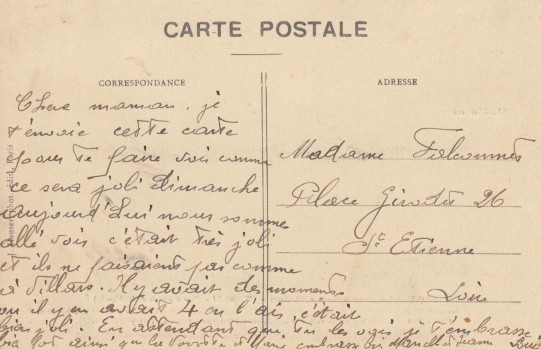 CARTE POSTALE
CORRESPONDANCE
Chere maman. je
t'envoie cette carte
pour te faire voir comme
ce sera joli dimanche
aujourd'hui nous sommes
allé voir c'était très joli
et ils ne faisaient pas comme
à Villars. Il y avait des moments
ou il y en avait 4 en l'air c'était
bien joli. En attendant que tu les vois je t'embrasse
ainsi que
ADRESSE
Madame
Place Girodet 26
St Etienne
Loire